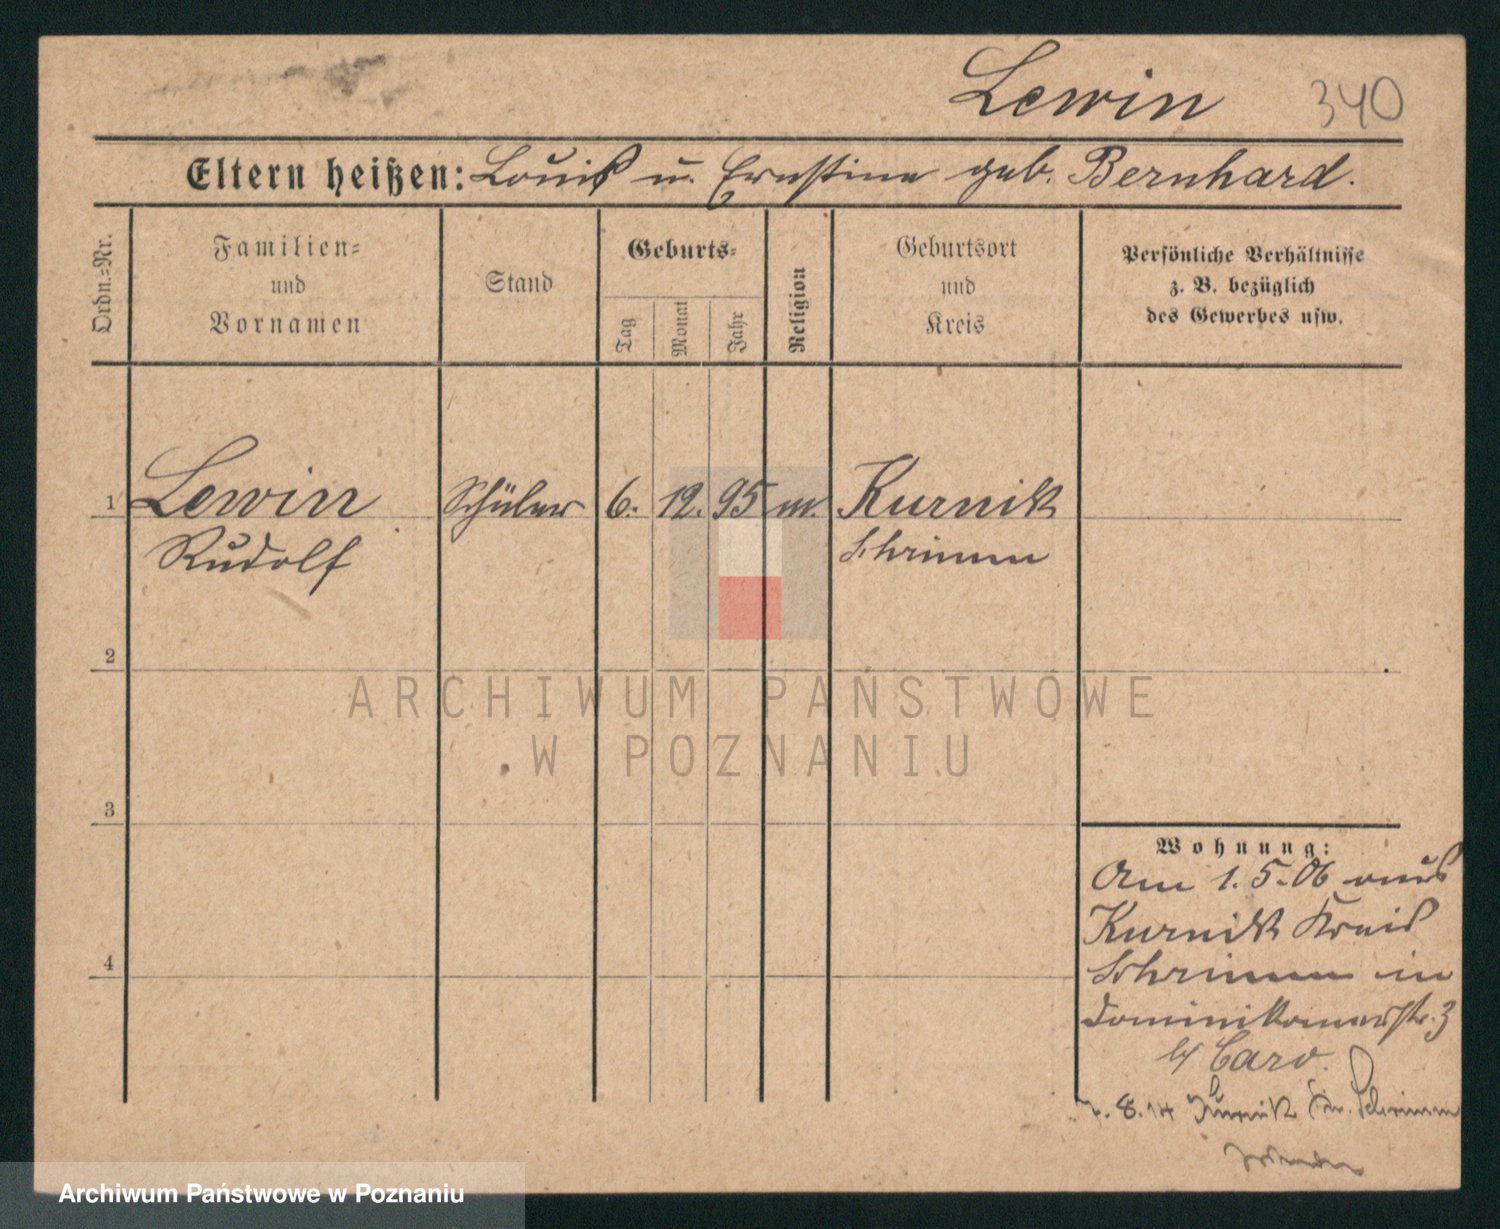 Lewin 340
Eltern heißen: Louis u. Ernstine geb. Bernhard.
Ordn.-Nr.
Familien-
und
Vornamen
Stand
Geburts-
Tag
Monat
Jahr
Religion
Geburtsort
und
Kreis
Persönliche Verhältnisse
z. B. bezüglich
des Gewerbes usw.
1 Lewin Schüler 6. 12. 95 m. Kurnik
Rudolf Schrimm
2
3
4
Wohnung:
Am 1. 5. 06 aus
Kurnik Kreis
Schrimm in
Dominikanerstr. 3
b/ Caro.
8. 14 Kurnik Kr. Schrimm
ARCHIWUM PAŃSTWOWE
W POZNANIU
Archiwum Państwowe w Poznaniu